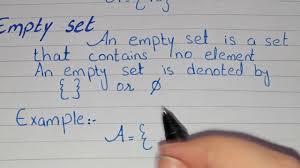 Empty set
An empty set is a set
that contains no element
An empty set is denoted by
{ } or ∅
Example:-
A={